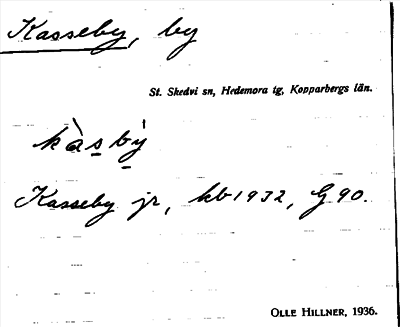 Kasseby, by
St. Skedvi sn, Hedemora tg, Kopparbergs län.
kàsbỳ̱
Kasseby jr, kb 1932, G 90.
OLLE HILLNER, 1936.